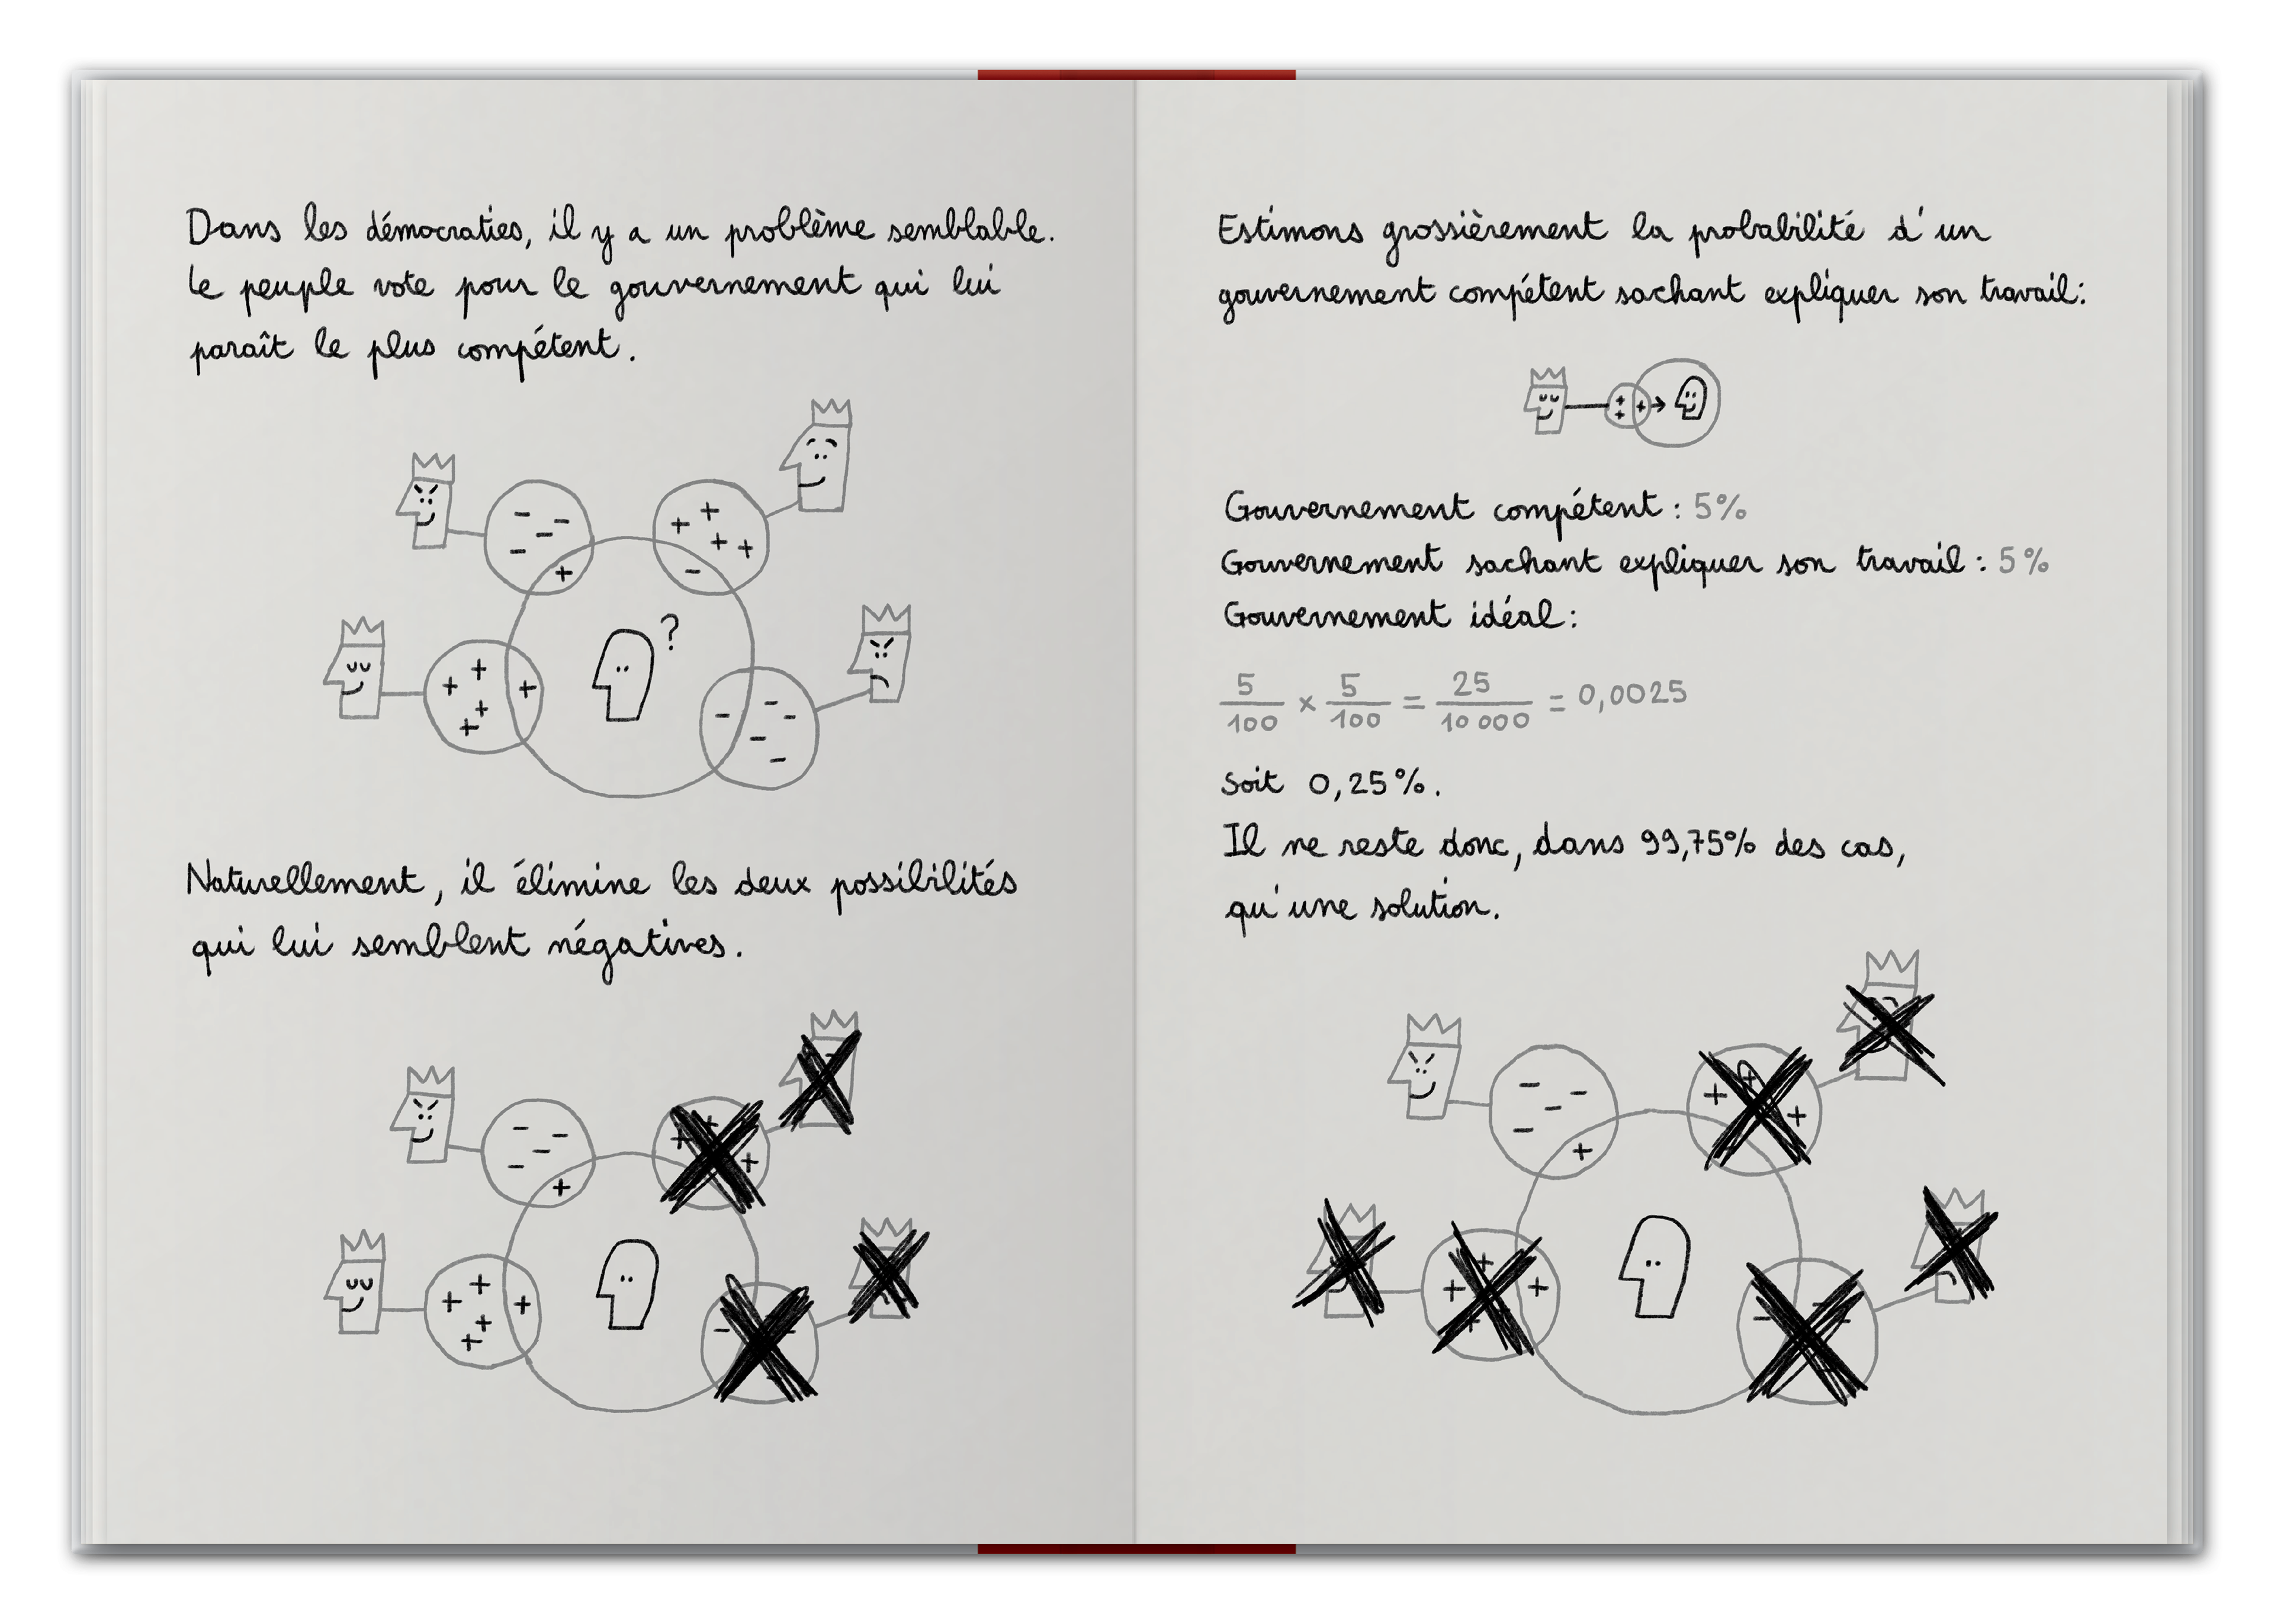 Dans les démocraties, il y a un problème semblable.
Le peuple vote pour le gouvernement qui lui
paraît le plus compétent.
?
Naturellement, il élimine les deux possibilités
qui lui semblent négatives.
Estimons grossièrement la probabilité d'un
gouvernement compétent sachant expliquer son travail:
Gouvernement compétent : 5%
Gouvernement sachant expliquer son travail : 5%
Gouvernement idéal :
5/100 × 5/100 = 25/10 000 = 0,0025
Soit 0,25%.
Il ne reste donc, dans 99,75% des cas,
qu'une solution.